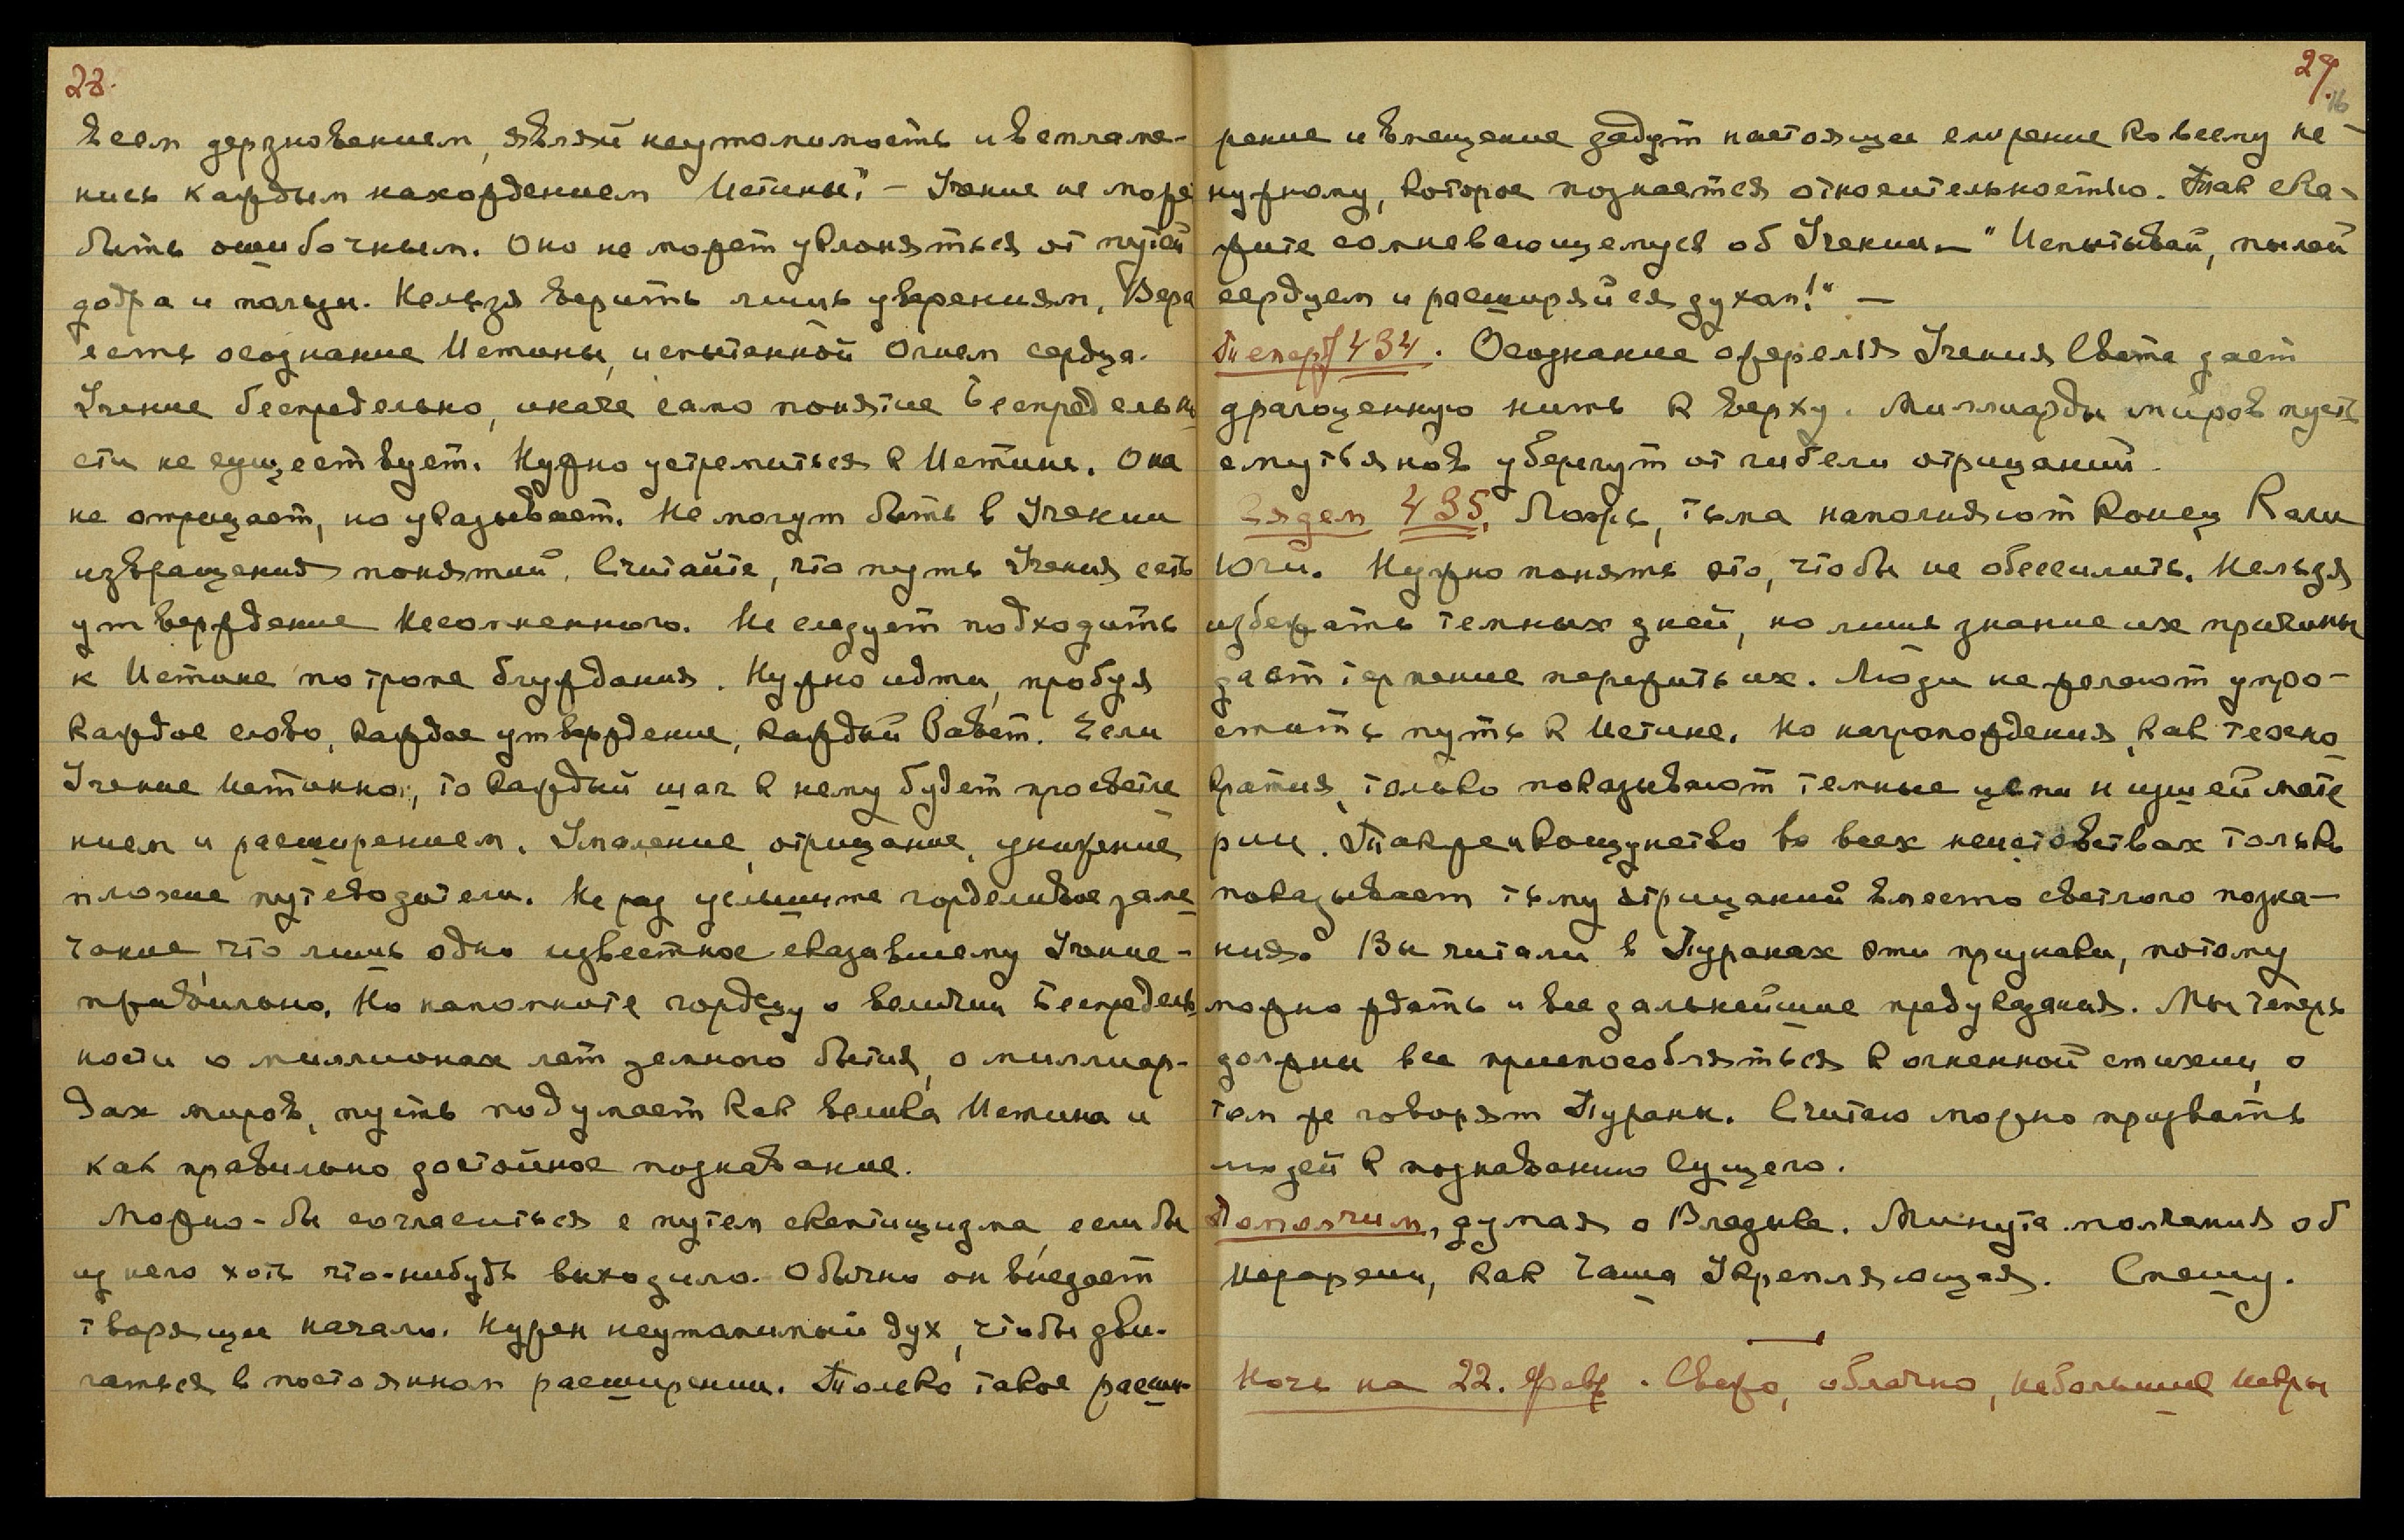 28.
всем дерзновением, являй неутомимость и воспламе-
нись каждым нахождением Истины." — Учение не може
быть ошибочным. Оно не может уклоняться от путей
добра и пользы. Нельзя верить лишь уверениям, Вера
есть осознание Истины, испытанной Огнем сердца.
Учение беспредельно, иначе само понятие Беспредельн
сти не существует. Нужно устремиться к Истине. Она
не отрицает, но указывает. Не могут быть в Учении
извращения понятий. Считайте, что путь Учения есть
утверждение Несомненного. Не следует подходить
к Истине по тропе блуждания. Нужно идти, пробуя
каждое слово, каждое утверждение, каждый Завет. Если
Учение Истинно, то каждый шаг к нему будет просветле
нием и расширением. Умаление, отрицание, унижение
плохие путеводители. Не раз услышите горделивое заме
чание, что лишь одно известное сказавшему Учение-
правильно. Но напомните гордецу о величии Беспредель
ности о миллионах лет земного бытия, о миллиар-
дах миров, пусть подумает как велика Истина и
как правильно достойное познавание.
Можно-бы согласиться с путем скептицизма если бы
из него хоть что-нибудь выходило. Обычно он въедает
творящее начало. Нужен неутомимый дух, чтобы дви-
гаться в постоянном расширении. Только такое расши-
29.
16
рение и вмещение дадут настоящее смирение ко всему не
нужному, которое познается относительностью. Так ска-
жите сомневающемуся об Учении — "Испытывай, пылай
сердцем и расширяйся духом!" —
Теперь 434. Осознание ожерелья Учения Света дает
драгоценную нить к верху. Миллиарды миров пусть
смутьянов уберегут от гибели отрицаний.
Сядем 435. Ложь, тьма наполняют Конец Кали
Юги. Нужно понять это, чтобы не обессилить. Нельзя
избежать темных дней, но лишь знание их причины
дает терпение пережить их. Люди не желают упро-
стить путь к Истине. Но нагромождения, как техно
кратия, только показывают темные цепи низшей мате
рии. Также и кощунство во всех неистовствах только
показывает тьму отрицаний вместо светлого позна-
ния. Вы читали в Пуранах эти признаки, потому
можно ждать и все дальнейшие предуказания. Мы теперь
должны все приспособляться к огненной стихии, о
том же говорят Пураны. Считаю можно призвать
людей к познаванию Сущего.
Помолчим, думая о Владыке. Минута молчания об
Иерархии, как Чаша Укрепляющая. Спешу.
Ночь на 22. Февр. Свежо, облачно, небольшие искры